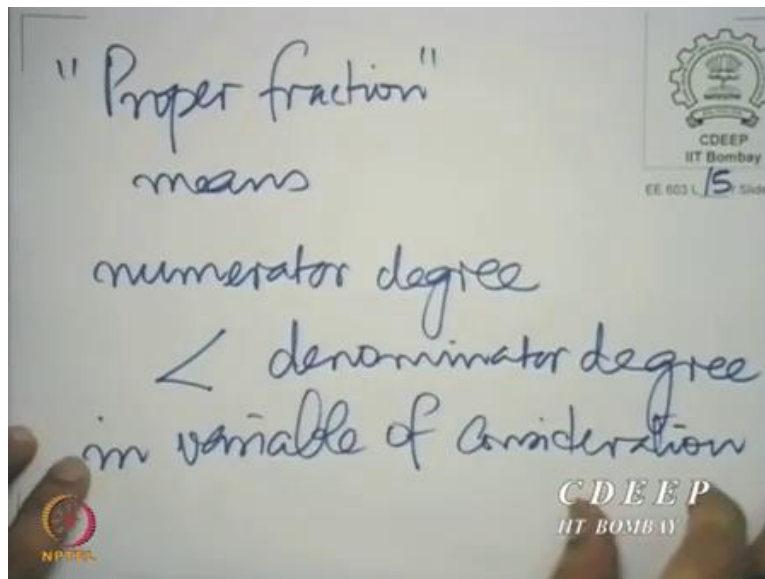 "Proper fraction"
means
numerator degree
< denominator degree
in variable of consideration
CDEEP
IIT Bombay
EE 603 L 15 / Slide
CDEEP
IIT BOMBAY
NPTEL